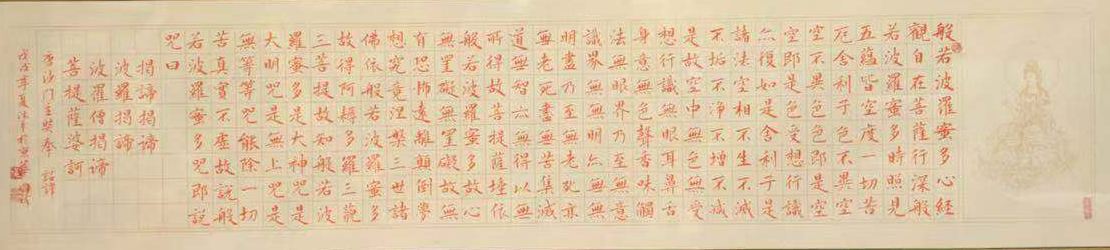 般若波羅蜜多心經
觀自在菩薩行深般
若波羅蜜多時照見
五蘊皆空度一切苦
厄舍利子色不異空
空不異色色即是空
空即是色受想行識
亦復如是舍利子是
諸法空相不生不滅
不垢不淨不增不減
是故空中無色無受
想行識無眼耳鼻舌
身意無色聲香味觸
法無眼界乃至無意
識界無無明亦無無
明盡乃至無老死亦
無老死盡無苦集滅
道無智亦無得以無
所得故菩提薩埵依
般若波羅蜜多故心
無罣礙無罣礙故無
有恐怖遠離顛倒夢
想究竟涅槃三世諸
佛依般若波羅蜜多
故得阿耨多羅三藐
三菩提故知般若波
羅蜜多是大神咒是
大明咒是無上咒是
無等等咒能除一切
苦真實不虛故說般
若波羅蜜多咒即說
咒曰
揭諦揭諦
波羅揭諦
波羅僧揭諦
菩提薩婆訶
唐沙門玄奘奉 詔譯
年夏